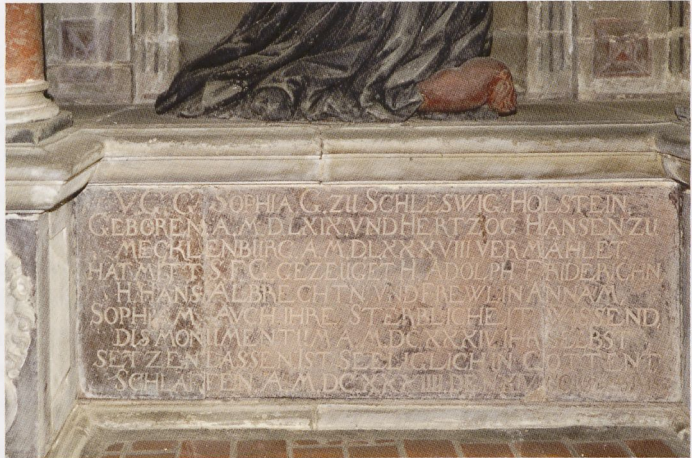 V. G. G. SOPHIA G. ZU SCHLESWIG, HOLSTEIN,
GEBOREN A. M. DLXIX VND HERTZOG HANSEN ZU
MECKLENBURG A. M. DLXXXVIII VERMÄHLET
HAT MITT S. F. G. GEZEUGET H. ADOLPH FRIDERICHN
H. HANS ALBRECHTN VND FREWLEIN ANNAM
SOPHIAM AVCH IHRE STERBLICHEIT WISSEND
DIS MONUMENTUM A. M. DCXXXIV IHR SELBST
SETZEN LASSEN IST SEELIGLICH IN GOTT ENT
SCHLAFFEN A. M. DCXXXIIII DE